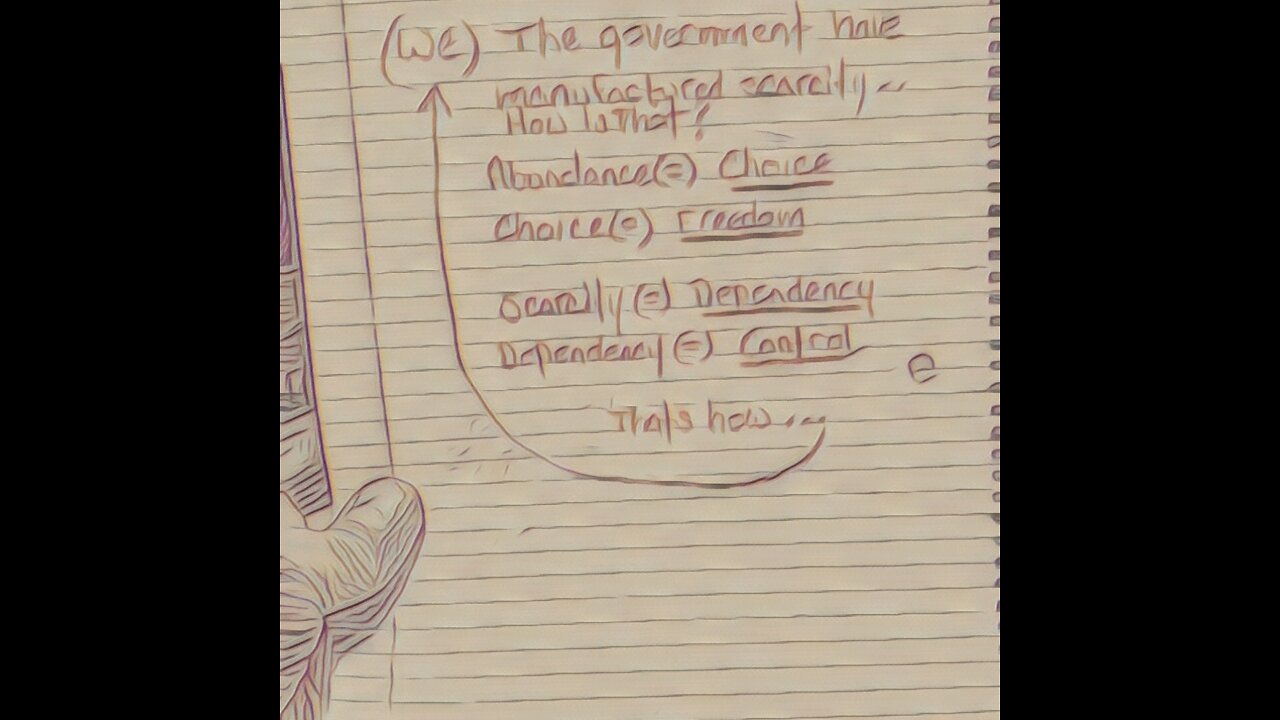 (WE) The government have
manufactured scarcity ...
How is that?
Abondance(=) Choice
Choice(=) Freedom
Scarcity(=) Dependency
Dependency(=) Control
e
That's how ...